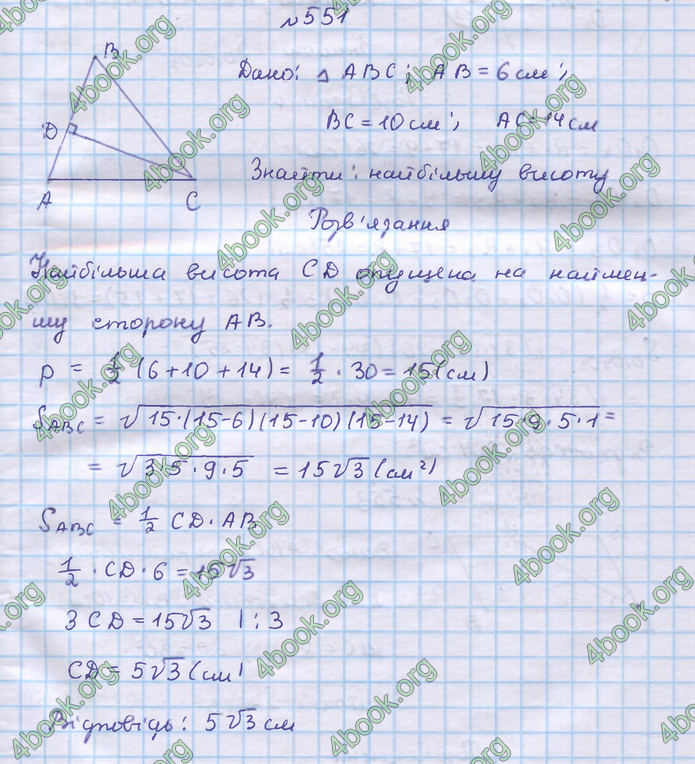 №551
B
D
A
C
Дано: △ABC; AB = 6 см;
BC = 10 см; AC = 14 см
Знайти: найбільшу висоту
Розв'язання
Найбільша висота CD опущена на наймен-
шу сторону AB.
p = 1/2 (6+10+14) = 1/2 · 30 = 15 (см)
S_ABC = √(15·(15-6)(15-10)(15-14)) = √(15·9·5·1) =
= √(3·5·9·5) = 15√3 (см²)
S_ABC = 1/2 CD·AB
1/2 · CD · 6 = 15√3
3CD = 15√3 |:3
CD = 5√3 (см)
Відповідь: 5√3 см
4book.org